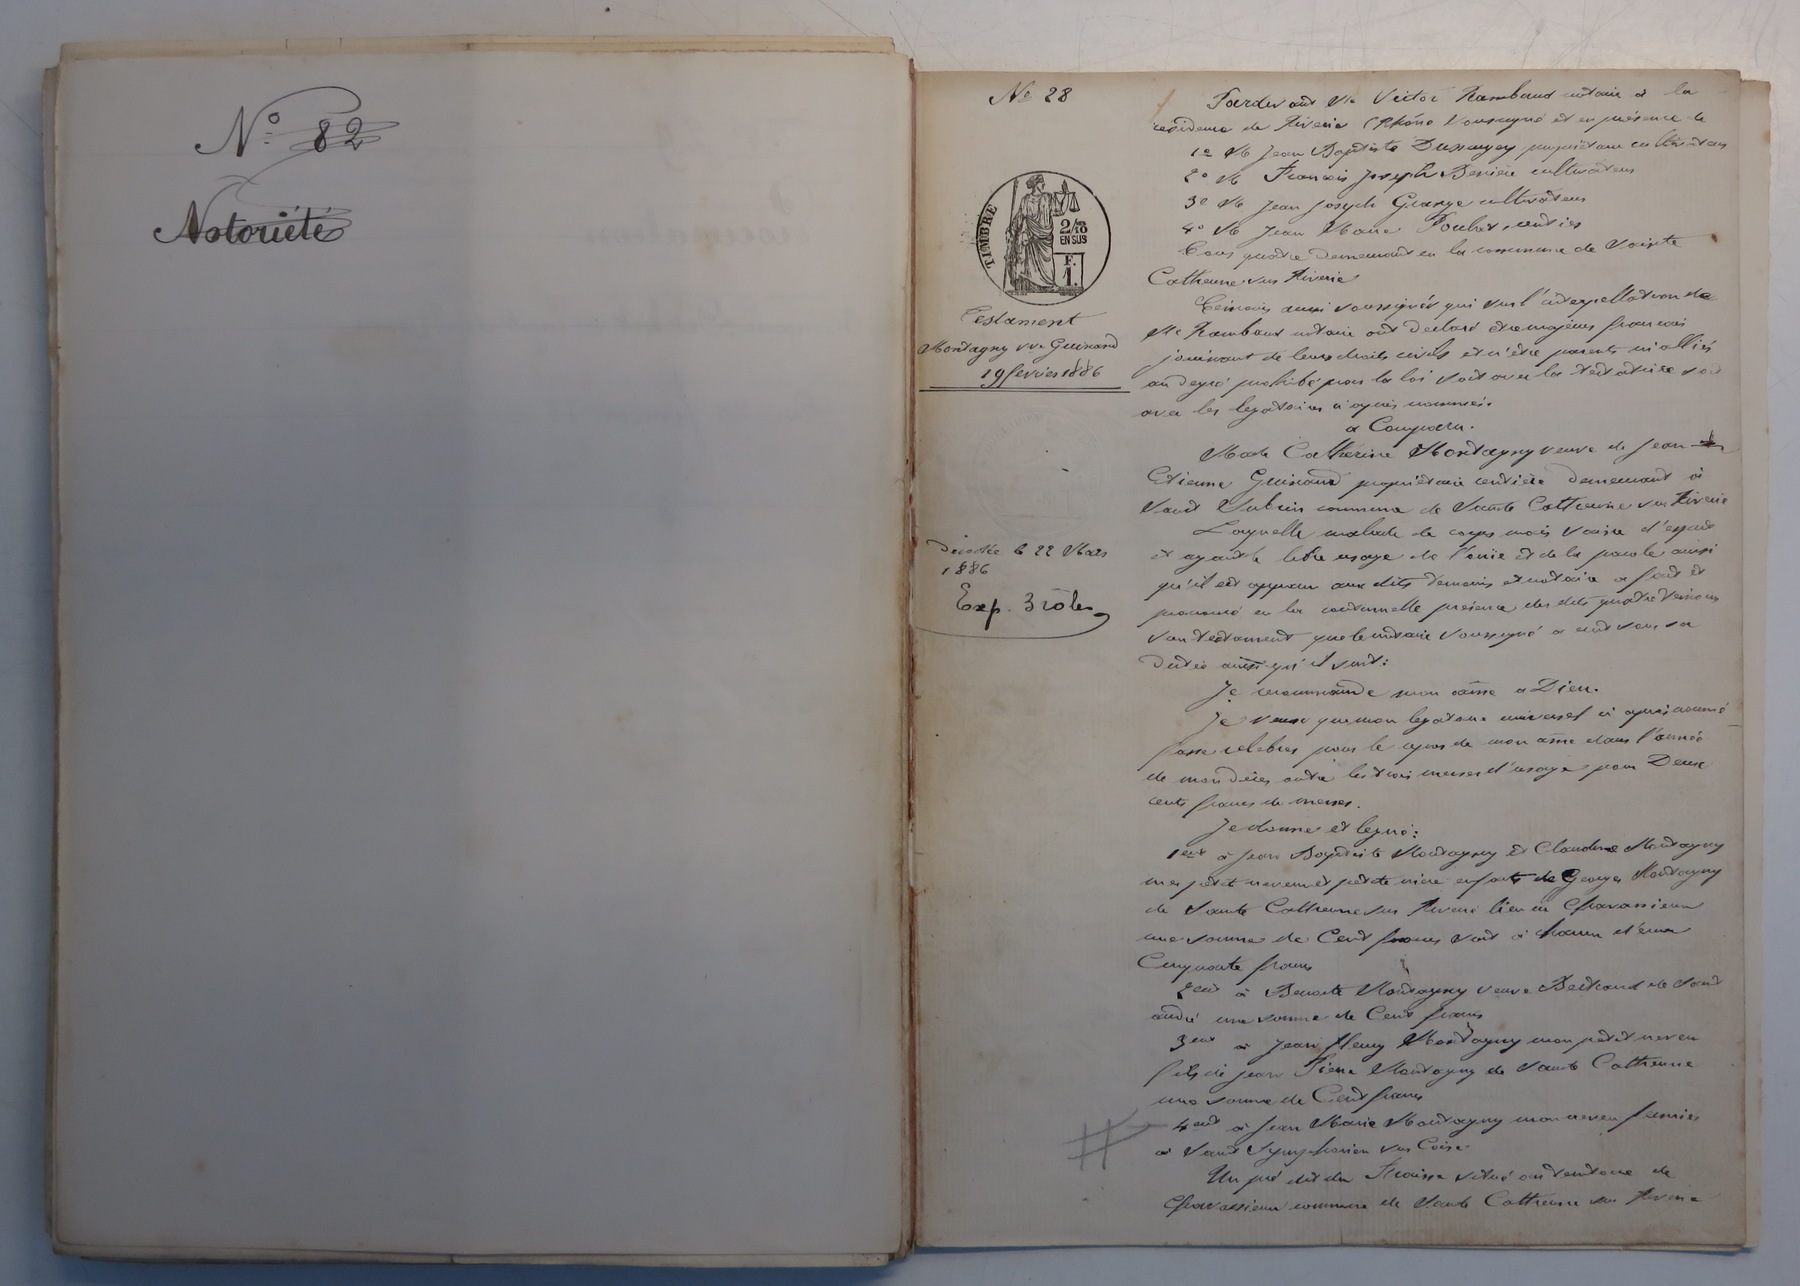 N° 82
Notoriété
N° 28
TIMBRE
2/10
EN SUS
F.
1.
Testament
Montagny vve Guinand
19 fevrier 1886
Décédée le 22 Mars
1886
Exp. 3 rôles
Pardevant Me Victor Rambaud notaire à la
residence de Riverie (Rhône soussigné et en présence de
1° M Jean Baptiste Dussurgey propriétaire cultivateur
2° M François Joseph cultivateur
3° M Jean Joseph Grange cultivateur
4° M Jean Marie rentier
Tous quatre demeurant en la commune de Sainte
Catherine sur Riverie
Témoins aussi soussignés qui sur l'interpellation de
Me Rambaud notaire ont declaré etre majeurs francais
jouissant de leurs droits civils et n'être parents ni alliés
au degré prohibé par la loi soit avec la testatrice soit
avec les legataires ci après nommés.
a Comparu.
Made Catherine Montagny veuve de Jean
Etienne Guinand propriétaire rentière demeurant à
Saint commune de Sainte Catherine sur Riverie
Laquelle malade de corps mais saine d'esprit
et ayant le libre usage de l'ouie et de la parole ainsi
qu'il est apparu aux dits temoins et notaire a fait et
prononcé en la continuelle présence des dits quatre temoins
son testament que le notaire soussigné a ecrit sous sa
dictée ainsi qu'il suit:
Je recommande mon âme a Dieu.
Je veux que mon legataire universel ci après nommé
fasse celebrer pour le repos de mon âme dans l'année
de mon décès outre les trois messes d'usage pour Deux
cents francs de messes.
Je donne et legue:
1ent à Jean Baptiste Montagny et Claudine Montagny
mes petit neveu et petite nièce enfants de Georges Montagny
de Sainte Catherine sur Riverie lieu de Chavassieux
une somme de Cent francs soit à chacun d'eux
Cinquante francs
2ent à Benoite Montagny veuve Bertrand de Saint
andré une somme de Cent francs
3ent à Jean Fleury Montagny mon petit neveu
fils de Jean Pierre Montagny de Sainte Catherine
une somme de Cent francs
4ent à Jean Marie Montagny mon neveu fermier
à Saint Symphorien sur Coise
Un pré dit du situé au territoire de
Chavassieux commune de Sainte Catherine sur Riverie